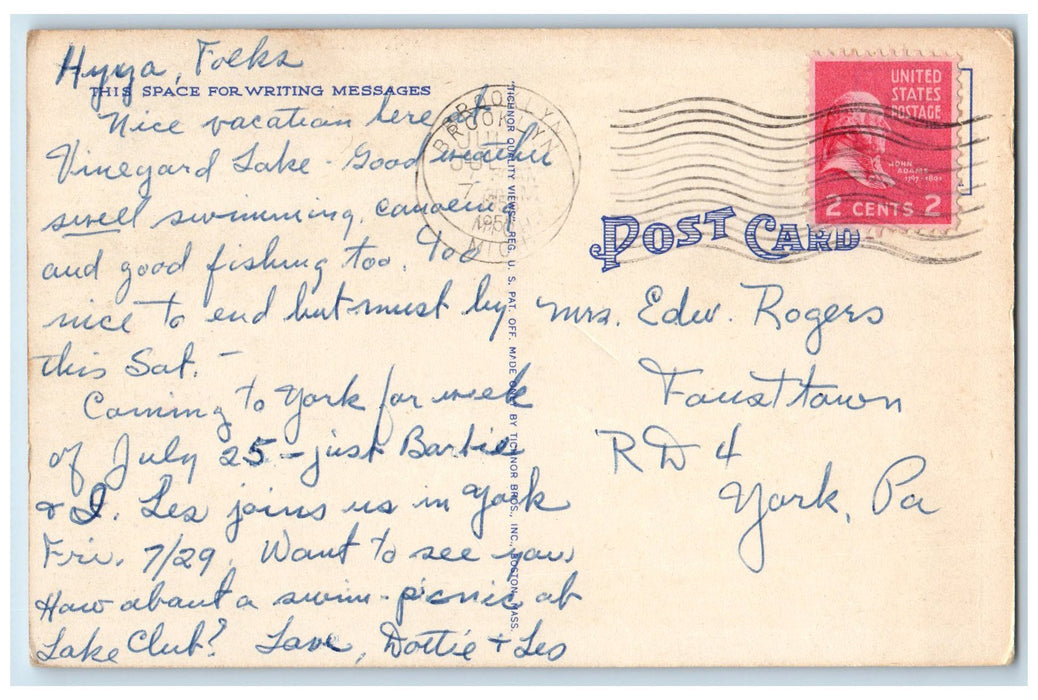 Hyya, Folks
THIS SPACE FOR WRITING MESSAGES
Nice vacation here at
Vineyard Lake - Good weather
swell swimming, canoeing
and good fishing too. Too
nice to end but must by
this Sat. -
Coming to York for week
of July 25 - just Barbie
& I. Les joins us in York
Fri. 7/29. Want to see you.
How about a swim - picnic at
Lake Club? Love, Dottie + Les
"TICHNOR QUALITY VIEWS," REG. U. S. PAT. OFF. MADE ONLY BY TICHNOR BROS., INC., BOSTON, MASS.
BROOKLYN
BROOKLYN
MICH
UNITED
STATES
POSTAGE
JOHN
ADAMS
1797-1801
2 CENTS 2
POST CARD
Mrs. Edw. Rogers
Fousttown
RD 4
York, Pa